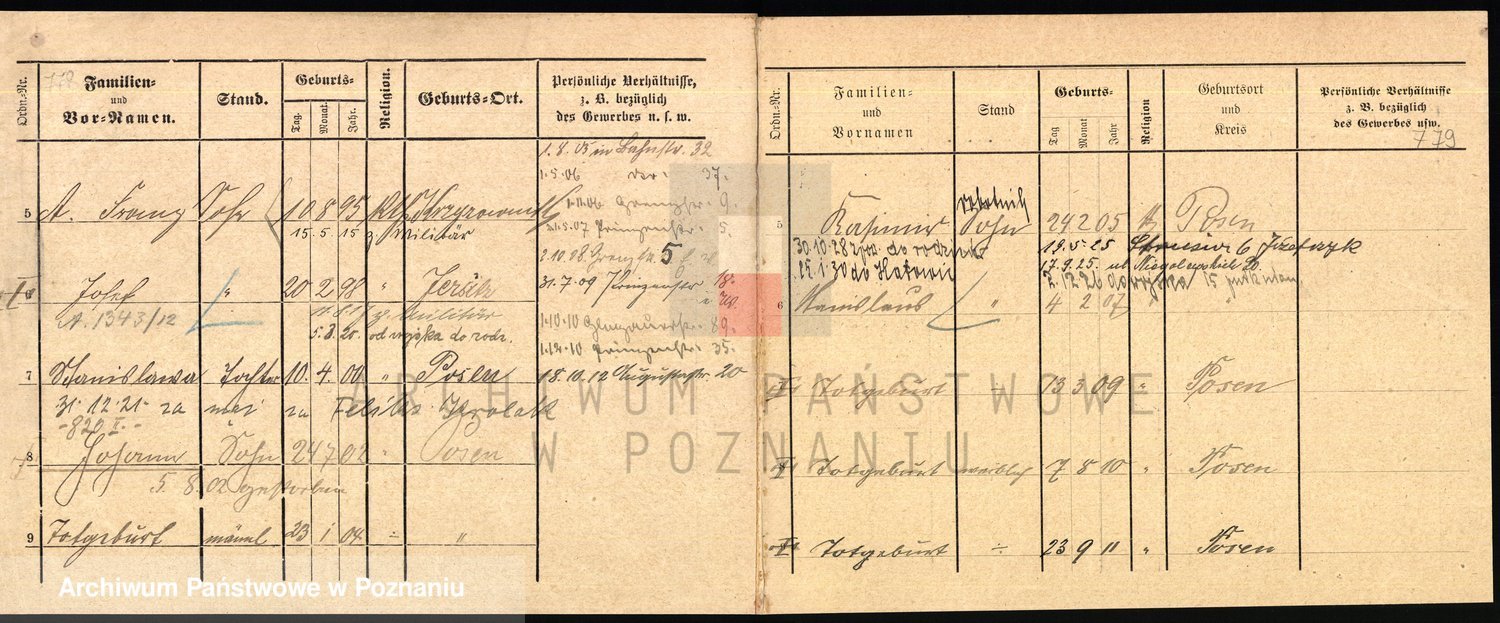 772
Ordn.-Nr.
Familien- und Vor-Namen.
Stand.
Geburts-
Tag. Monat. Jahr.
Religion.
Geburts-Ort.
Persönliche Verhältnisse, z. B. bezüglich des Gewerbes u. s. w.
1.8.05 in Bahnstr. 32
1.5.06 37.
1.11.06 Grenzstr. 9.
1.5.07 Prinzenstr. 5.
2.10.08 Grenzstr. 5
31.7.09 Prinzenstr 18.
1.10.10 Glogauerstr. 89.
1.12.10 Prinzenstr. 35.
18.10.12 Augustastr. 20
5 A. Franz Sohn 10 8 95 kth
15.5.15 z Militär
6 Josef " 20 2 98 " Jersitz
A. 1343/12 z. Militär
5.3.20. od wojska do rodz.
7 Stanislawa Tochter 10. 4. 00 " Posen
31.12.21. za mąż za Feliks Królak
820 II
8 Johann Sohn 24 7 02 " Posen
5.8.02 gestorben
9 Totgeburt männl 23 1 04 ÷ "
Ordn.-Nr.
Familien- und Vornamen
Stand
Geburts-
Tag Monat Jahr
Religion
Geburtsort und Kreis
Persönliche Verhältnisse z. B. bezüglich des Gewerbes usw.
779
robotnik
5 Kasimir Sohn 24 2 05 Posen
30.10.28 do rodziców
19.5.25 6
15.1.30 do Katowic
17.9.25.
2.12.26 do wojska 15
6 Stanislaus " 4 2 07 "
Totgeburt ÷ 13 3 09 " Posen
Totgeburt weiblich 7 8 10 " Posen
Totgeburt ÷ 23 9 11 " Posen
ARCHIWUM PAŃSTWOWE
W POZNANIU
Archiwum Państwowe w Poznaniu